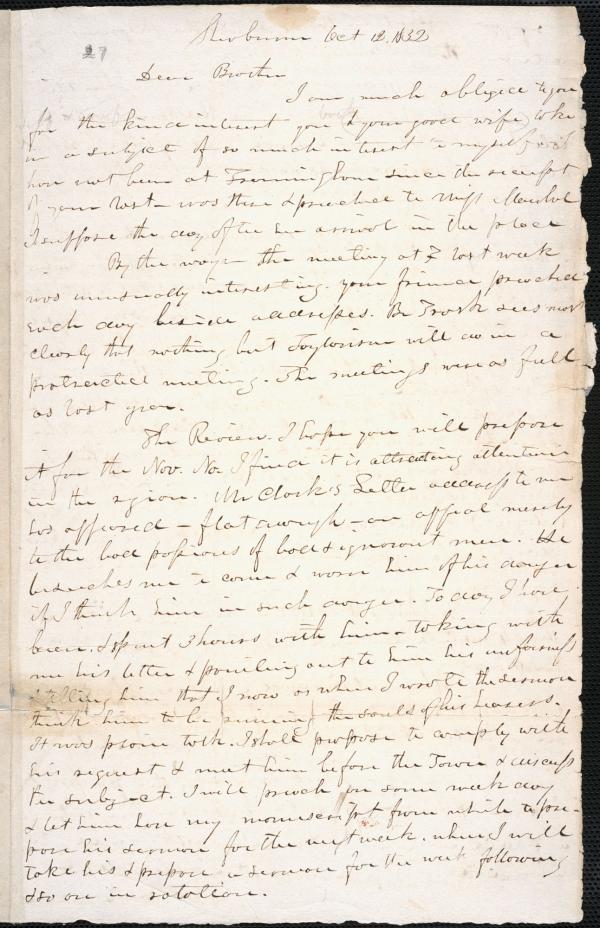 27
Sherburne Oct 12. 1832
Dear Brother
I am much obliged to you
for the kind interest you & your good wife take
in a subject of so much interest to myself. I
have not been at Framingham since the receipt
of your last – was there & preached to
I suppose the day of the arrival in the place
By the way – the meeting at F last week
was unusually interesting. your friend preached
each day beside addresses. Br Trask sees most
clearly that nothing but Taylorism will do in a
protracted meeting. The meetings were as full
as last year.
The Review. I hope you will prepare
it for the Nov. No. I find it is attracting attention
in the region. Mr Clark's Letter address to me
has appeared – flat enough – an appeal merely
to the bad passions of bad & ignorant men. He
beseeches me to come & warn him of his danger
if I think him in such danger. To day I have
been & spent 3 hours with him – taking with
me his letter & pointing out to him his unfairness
& telling him that I now as when I wrote the sermon
think him to be ruining the souls of his hearers.
It was plain talk. I shall propose to comply with
his request & meet him before the Town & discuss
the subject. I will preach on some week day
& let him have my manuscript from which to pre-
pare his sermon for the next week. when I will
take his & prepare a sermon for the week following
& so on in rotation.